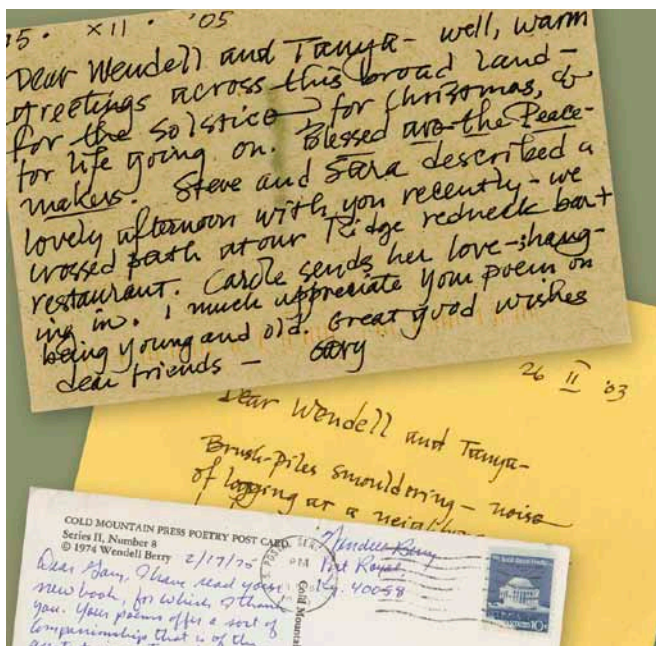 5 • XII • '05
Dear Wendell and Tanya- well, warm
greetings across this broad land-
for the Solstice for Christmas, &
for life going on. Blessed are the Peace-
makers. Steve and Sara described a
lovely afternoon with you recently - we
crossed path at our Ridge redneck bar +
restaurant. Carole sends her love - hang-
ing in. I much appreciate your poem on
being young and old. Great good wishes
dear friends - Gary
26 II '03
Dear Wendell and Tanya-
Brush-piles smouldring - noise
of logging at a
COLD MOUNTAIN PRESS POETRY POST CARD
Series II, Number 8
© 1974 Wendell Berry 2/17/75
Dear Gary, I have read your
new book, for which I thank
you. Your poems offer a sort of
companionship that is of the
Wendell Berry
Port Royal
Ky. 40058
PM
Cold Mountai
10c